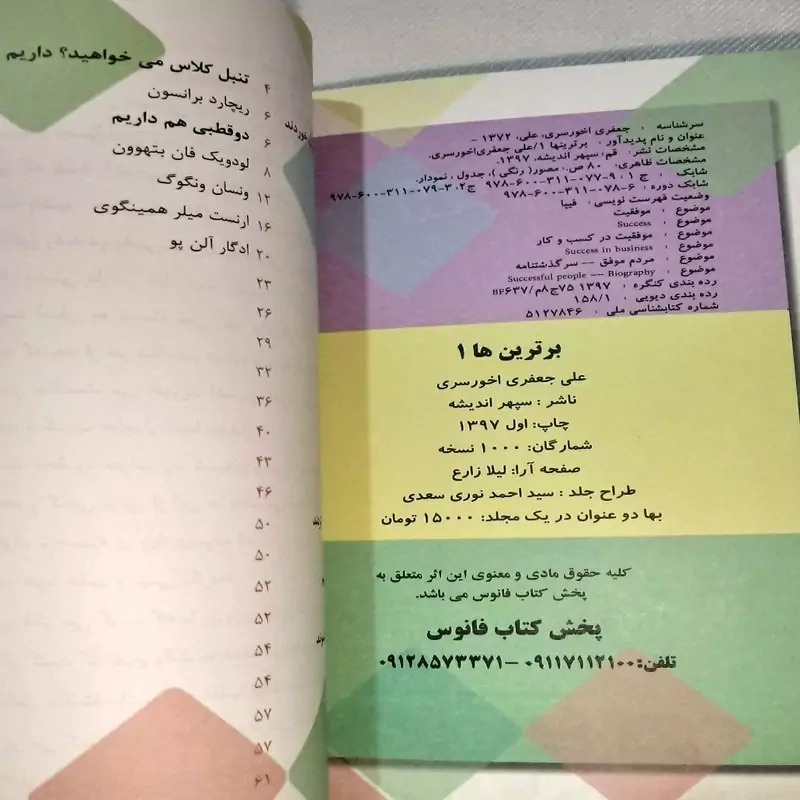 سرشناسه : جعفری اخورسری، علی، ۱۳۷۲ -
عنوان و نام پدیدآور : برترینها ۱/علی جعفری‌اخورسری.
مشخصات نشر : قم، سپهر اندیشه، ۱۳۹۷.
مشخصات ظاهری : ۸۰ ص.: مصور( رنگی )، جدول ، نمودار.
شابک : ج ۱ : ۹-۰۷۷-۳۱۱-۶۰۰-۹۷۸ ج۲: ۳-۰۷۹-۳۱۱-۶۰۰-۹۷۸
شابک دوره : ۶-۰۷۸-۳۱۱-۶۰۰-۹۷۸
وضعیت فهرست نویسی : فیپا
موضوع : موفقیت
موضوع : Success
موضوع : موفقیت در کسب و کار
موضوع : Success in business
موضوع : مردم موفق -- سرگذشتنامه
موضوع : Successful people -- Biography
رده بندی کنگره : ۱۳۹۷ ۷۵ج۸م/BF۶۳۷
رده بندی دیویی : ۱۵۸/۱
شماره کتابشناسی ملی : ۵۱۲۷۸۴۶
برترین ها ۱
علی جعفری اخورسری
ناشر : سپهر اندیشه
چاپ: اول ۱۳۹۷
شمارگان: ۱۰۰۰ نسخه
صفحه آرا: لیلا زارع
طراح جلد : سید احمد نوری سعدی
بها دو عنوان در یک مجلد: ۱۵۰۰۰ تومان
کلیه حقوق مادی و معنوی این اثر متعلق به
پخش کتاب فانوس می باشد.
پخش کتاب فانوس
تلفن: ۰۹۱۱۷۱۱۲۱۰۰ – ۰۹۱۲۸۵۷۳۳۷۱
تنبل کلاس می خواهید؟ داریم
ریچارد برانسون
دوقطبی هم داریم
لودویک فان بتهوون
ونسان ونگوگ
ارنست میلر همینگوی
ادگار آلن پو
خوردند
۴
۶
۶
۸
۱۲
۱۶
۲۰
۲۳
۲۶
۲۹
۳۲
۳۶
۴۰
۴۳
۴۶
۵۰
۵۰
۵۲
۵۲
۵۴
۵۴
۵۷
۵۷
۶۱